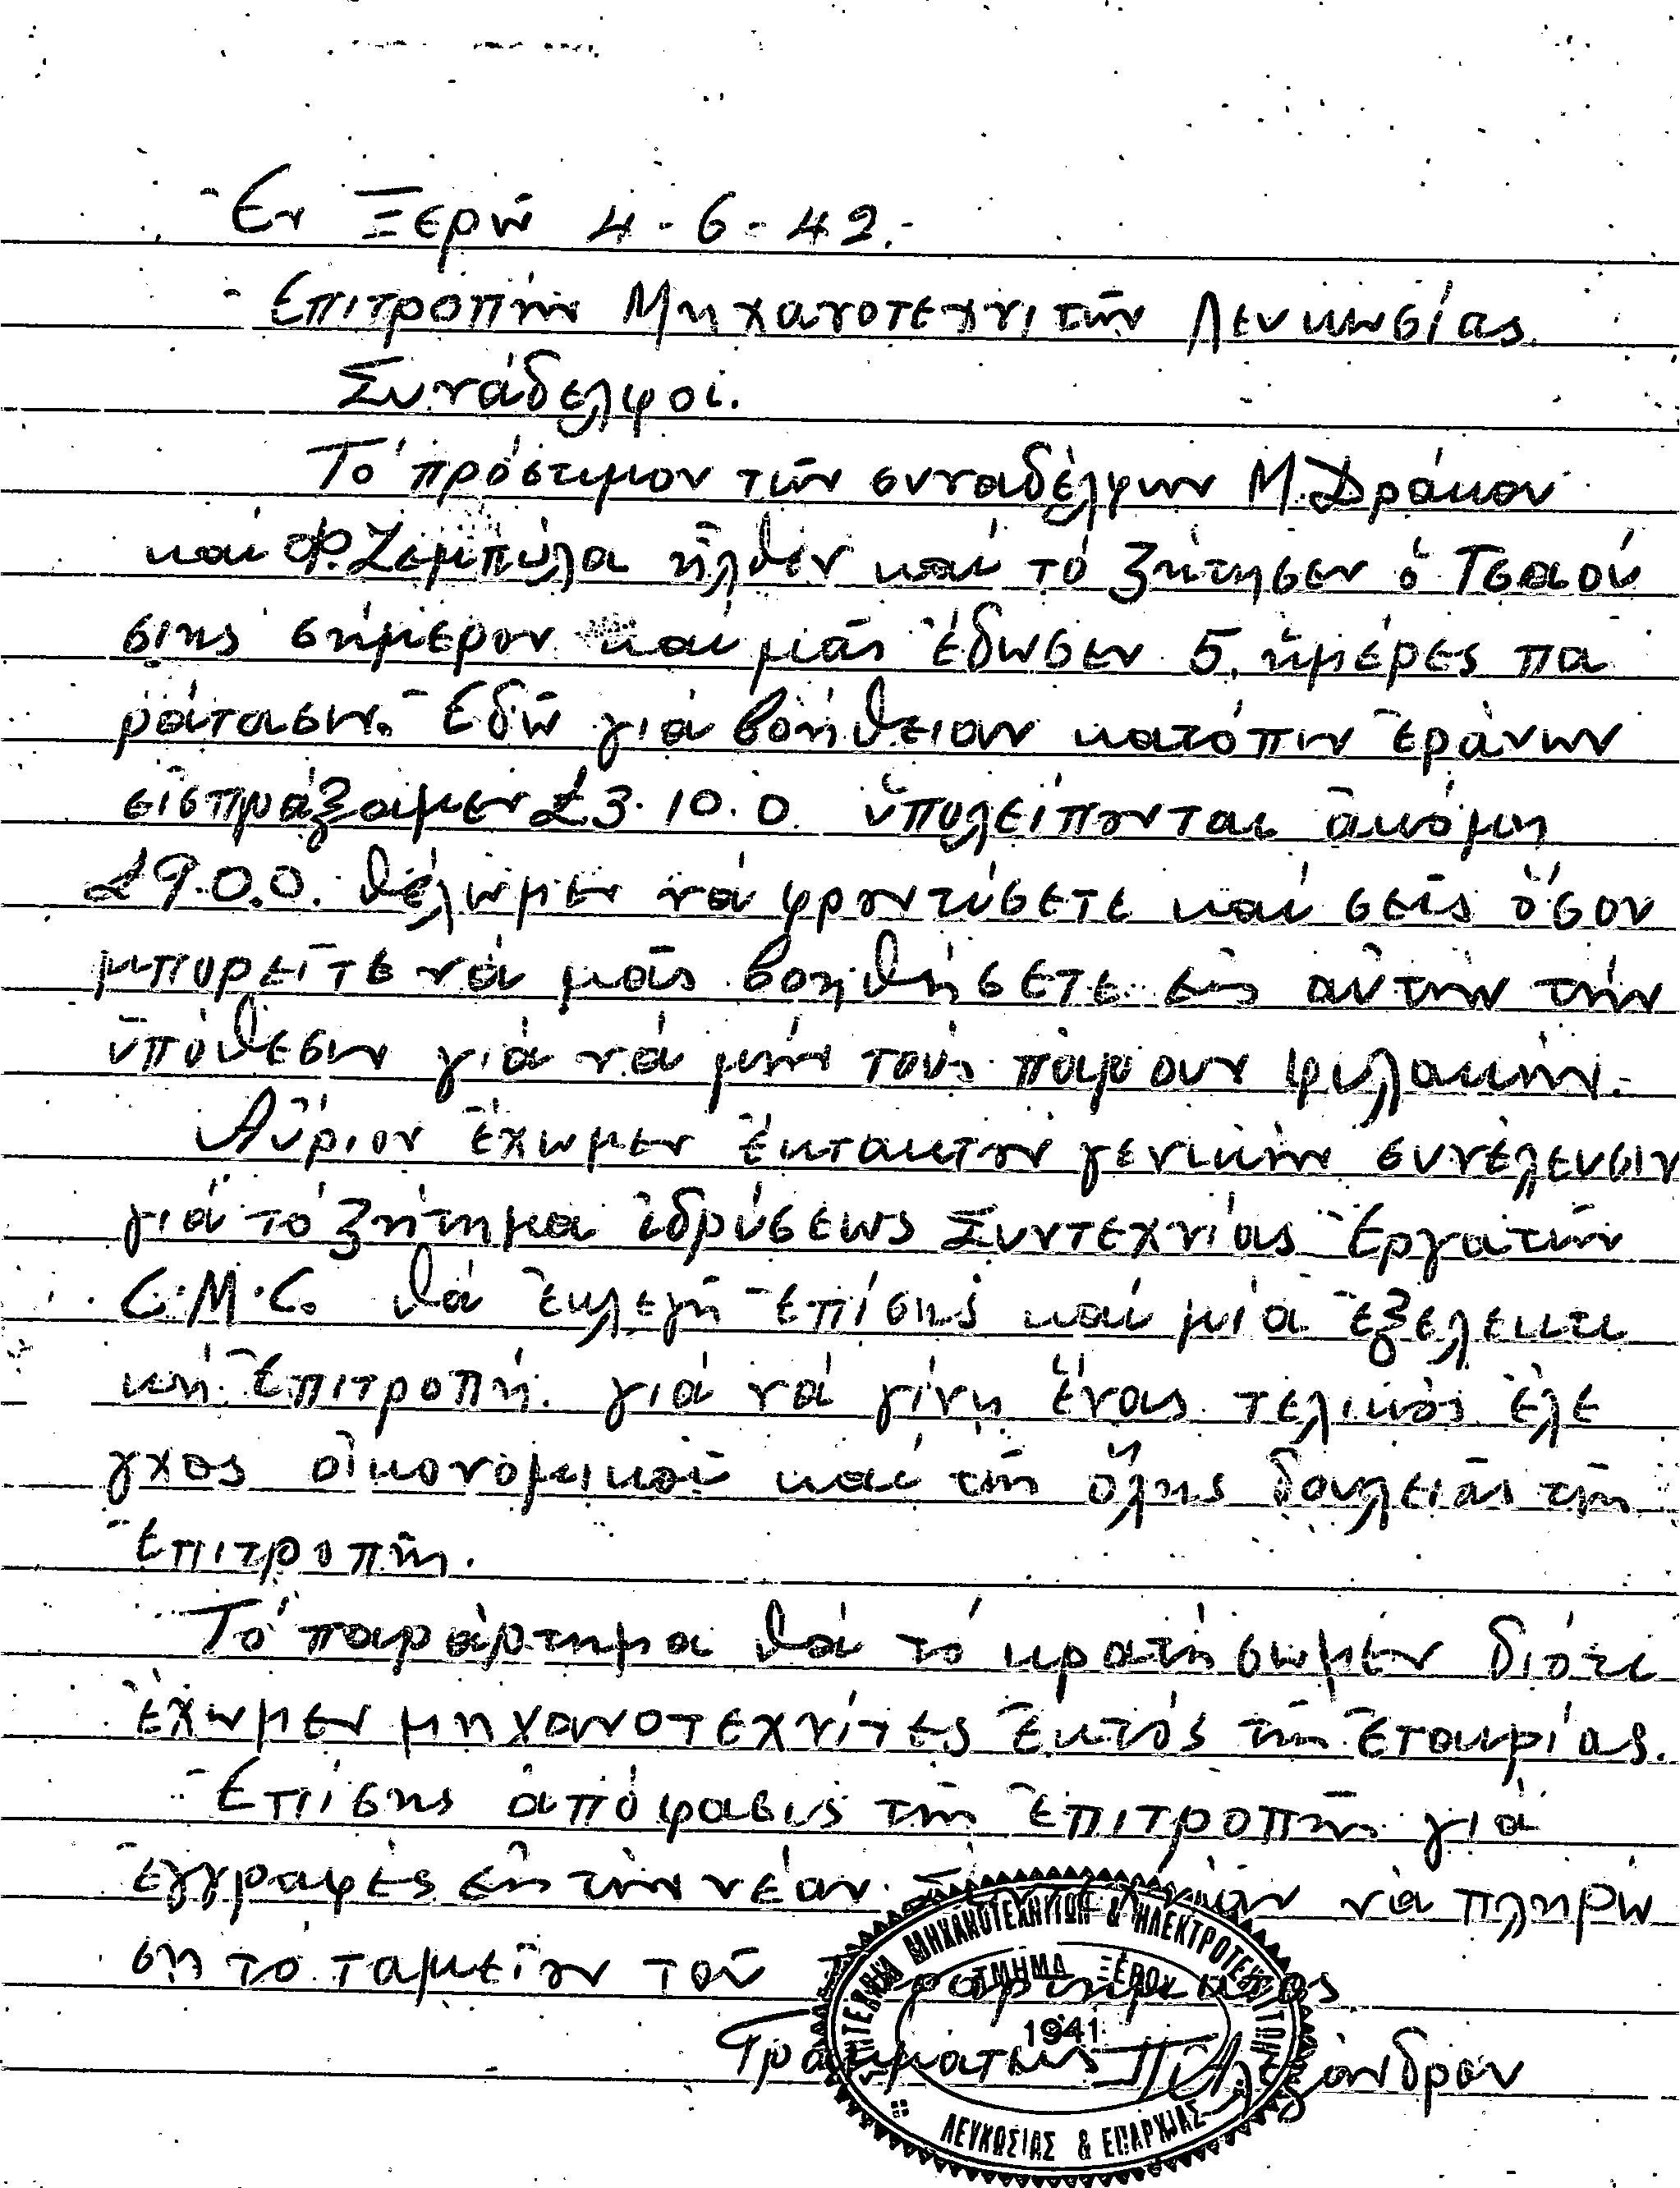 Ἐν Ξερῷ 4-6-42.-
Ἐπιτροπὴν Μηχανοτεχνιτῶν Λευκωσίας.
Συνάδελφοι.
Τὸ πρόστιμον τῶν συναδέλφων Μ. Δράκου
καὶ Φ. Ζεμπύλα ἦλθεν καὶ τὸ ζήτησεν ὁ Τσαού
σιης σήμερον καὶ μᾶς ἔδωσεν 5 ἡμέρες πα
ράτασιν. Ἐδῶ γιὰ βοήθειαν κατόπιν ἐράνων
εἰσπράξαμεν £3.10.0 ὑπολείπονται ἀκόμη
£9.0.0. θέλωμεν νὰ φροντύσετε καὶ σεῖς ὅσον
μπορεῖτε νὰ μᾶς βοηθήσετε εἰς αὐτὴν τὴν
ὑπόθεσιν γιὰ νὰ μὴν τοὺς πάρουν φυλακήν.-
Αὔριον ἔχωμεν ἔκτακτον γενικὴν συνέλευσιν
γιὰ τὸ ζήτημα ἱδρύσεως Συντεχνίας Ἐργατῶν
C.M.C. θὰ ἐκλεγῇ ἐπίσης καὶ μία ἐξελεκτι
κὴ Ἐπιτροπή. γιὰ νὰ γίνῃ ἕνας τελικὸς ἔλε
γχος οἰκονομικοῦ καὶ τῆς ὅλης δουλειᾶς τῆς
Ἐπιτροπῆς.
Τὸ παράρτημα θὰ τὸ κρατήσωμεν διότι
ἔχωμεν μηχανοτεχνίτες ἐκτὸς τῆς Ἑταιρίας.
Ἐπίσης ἀπόφασις τῆς Ἐπιτροπῆς γιὰ
ἐγγραφὲς εἰς τὴν νέαν Συντεχνίαν νὰ πληρώ
σῃ τὸ ταμεῖον τοῦ Παραρτήματος
Γραμματεὺς Π. Ἀλεξάνδρου
ΣΥΝΤΕΧΝΙΑ ΜΗΧΑΝΟΤΕΧΝΙΤΩΝ & ΗΛΕΚΤΡΟΤΕΧΝΙΤΩΝ
ΤΜΗΜΑ ΞΕΡΟΥ
1941
ΛΕΥΚΩΣΙΑΣ & ΕΠΑΡΧΙΑΣ